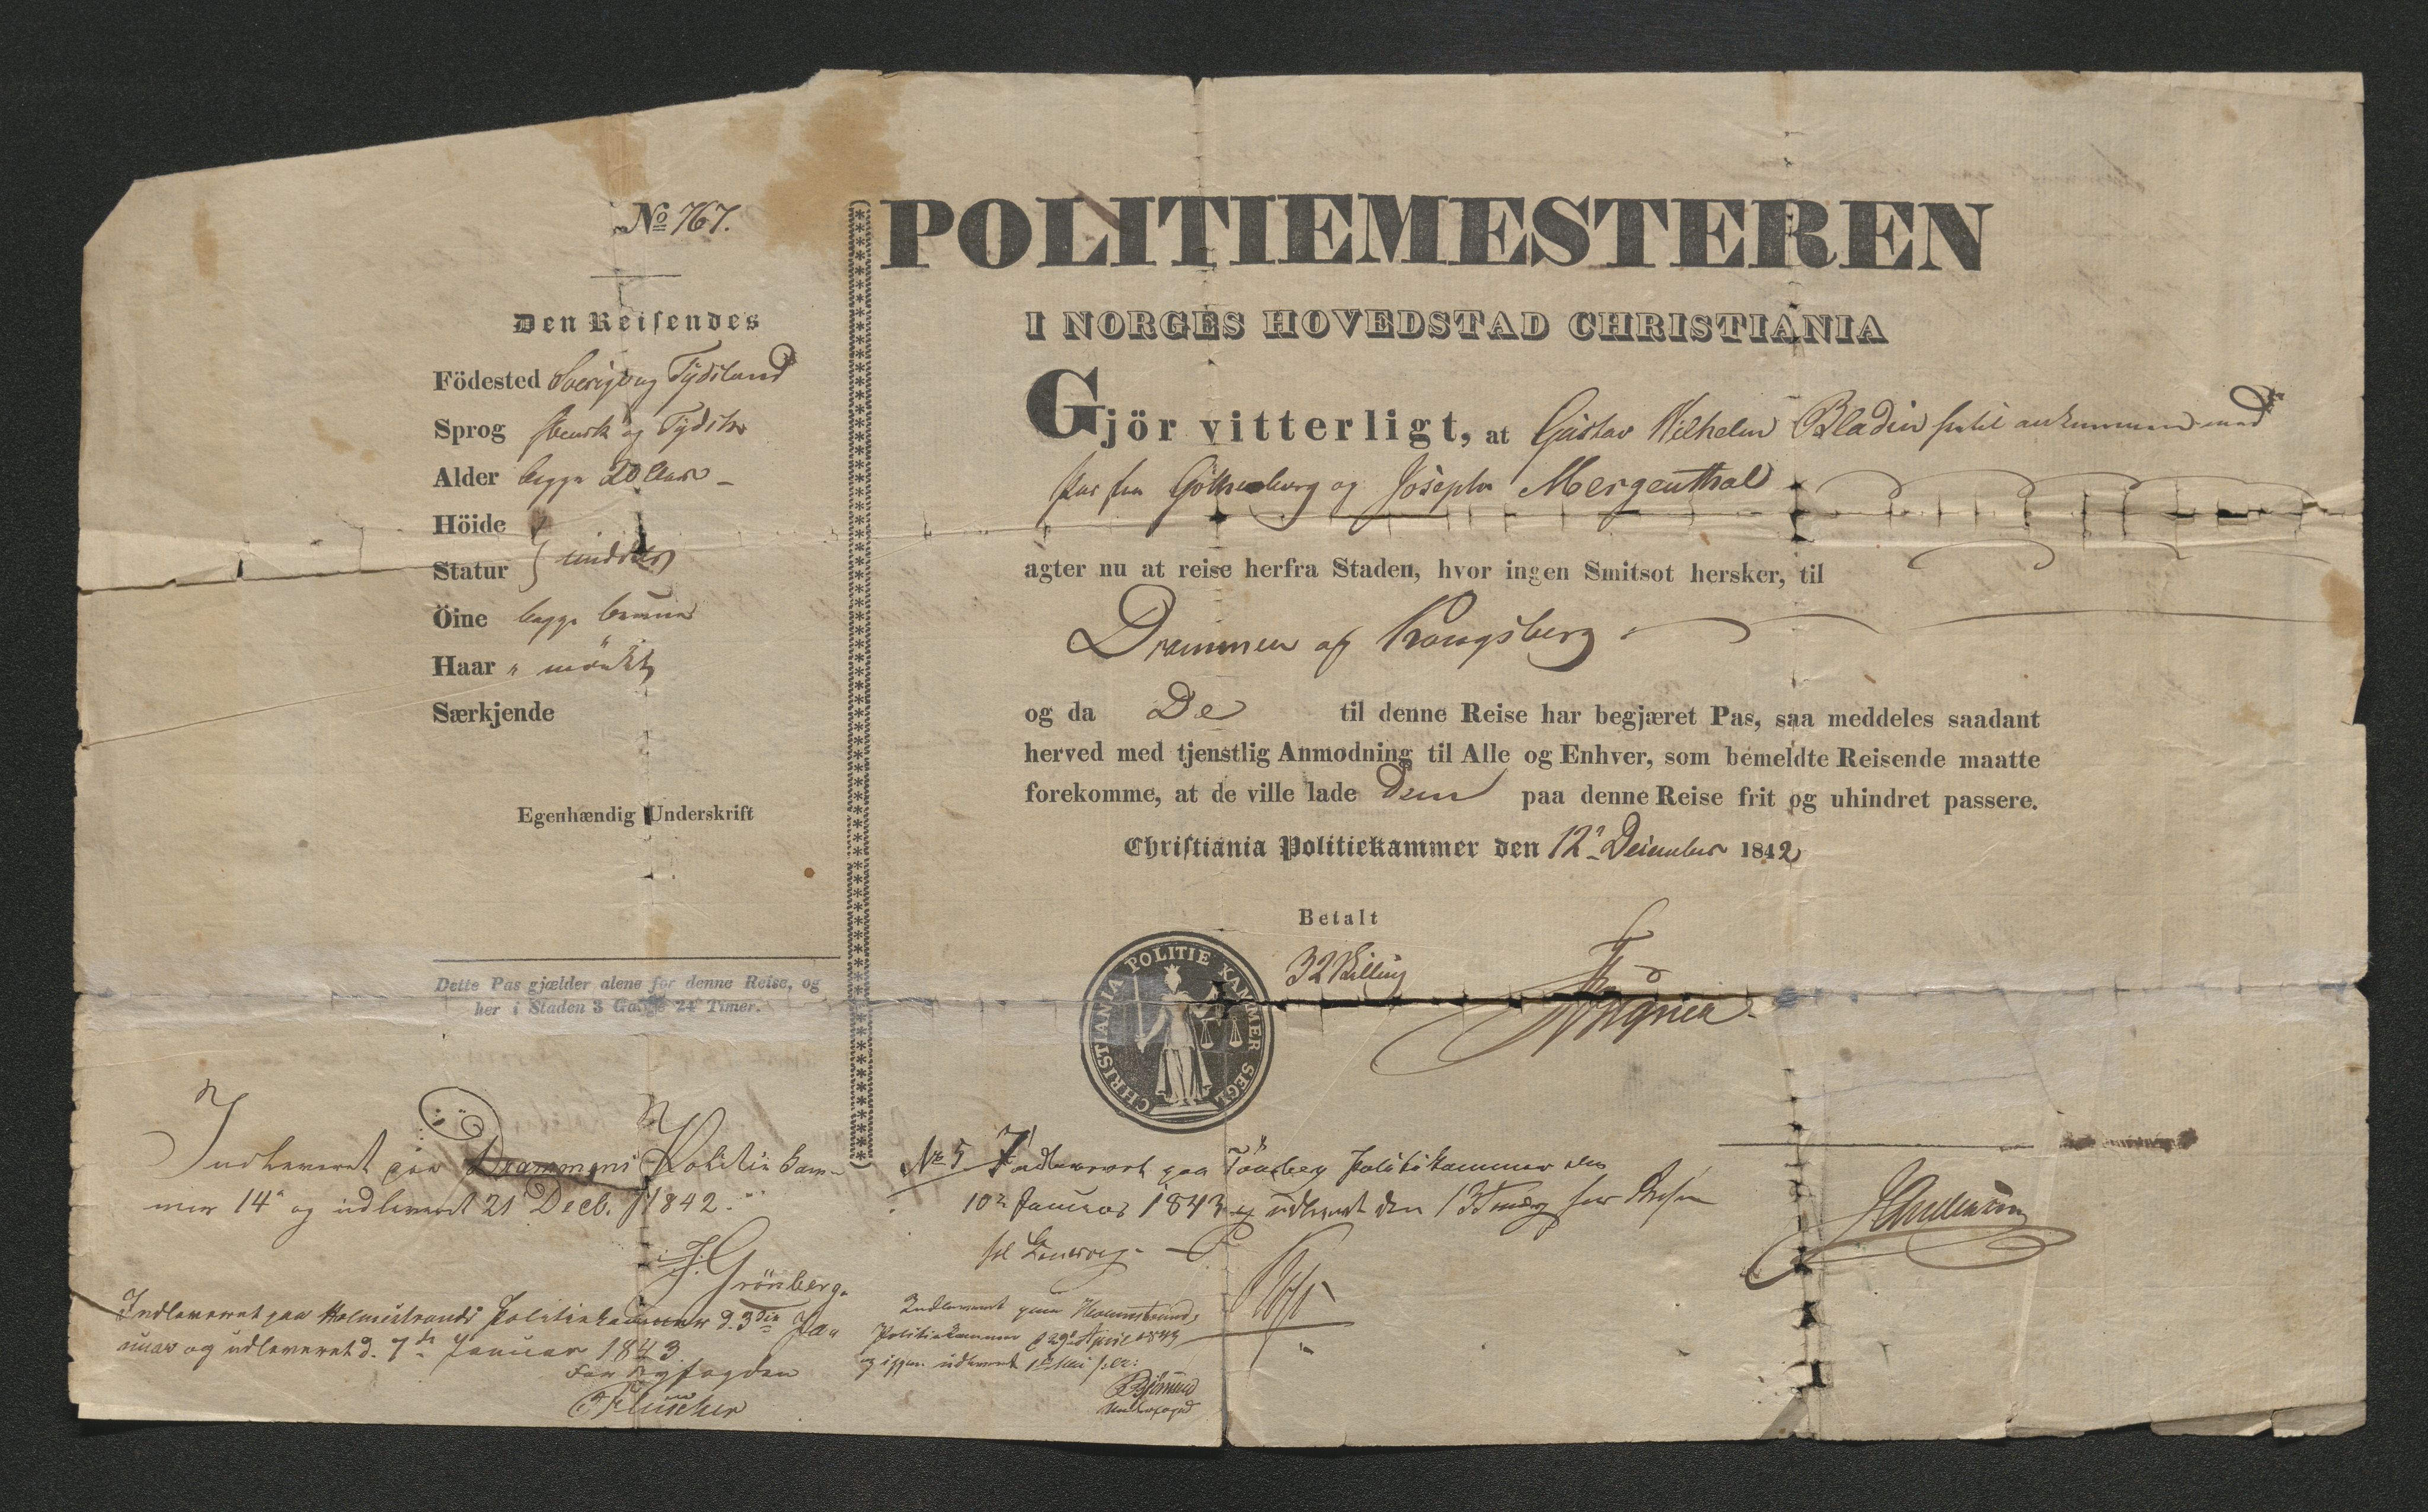 No 767.
Den Reisendes
Födested Sverige og Tydsland
Sprog svensk og Tydsk
Alder begge 20 Aar
Höide
Statur } middels
Öine begge brune
Haar " mörkt
Særkjende
Egenhændig Underskrift
Dette Pas gjælder alene for denne Reise, og
her i Staden 3 Gange 24 Timer.
POLITIEMESTEREN
I NORGES HOVEDSTAD CHRISTIANIA
Gjör vitterligt, at Gustav Wilhelm Bladin ankommen med
Pas fra Götheborg og Joseph Mergenthal
agter nu at reise herfra Staden, hvor ingen Smitsot hersker, til
Drammen og Kongsberg
og da De til denne Reise har begjæret Pas, saa meddeles saadant
herved med tjenstlig Anmodning til Alle og Enhver, som bemeldte Reisende maatte
forekomme, at de ville lade Dem paa denne Reise frit og uhindret passere.
Christiania Politiekammer den 12te December 1842
Betalt
32 Skilling
CHRISTIANIA POLITIE KAMMER SEGL
Indleveret paa Drammens Politiekam-
mer 14de og udleveret 21 Decb. 1842.
J. Grönberg.
Indleveret paa Holmestrands Politiekammer d. 3die Ja-
nuar og udleveret d. 7de Januar 1843.
For Byfogden
No 5 Indleveret paa Tönsberg Politikammer den
10de Januar 1843 og udleveret den 13
Indleveret paa
Politiekammer d 29de April 1843
og igjen udleveret 1ste Mai